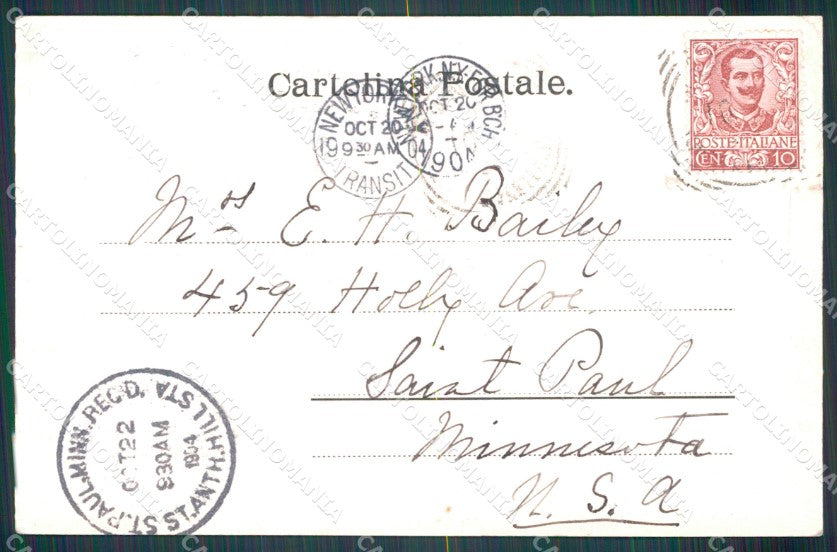 Cartolina Postale.
NEW YORK, N.Y.
OCT 20
9 30 AM
19 04
TRANSIT
OCT 20
1904
POSTE ITALIANE
CEN 10
Mrs E. H. Bailey
459 Holly Ave.
Saint Paul
Minnesota
U. S. A
ST. PAUL, MINN. REC'D.
ST. ANTH. HILL STA
OCT 22
9 30 AM
1904
CARTOLINOMANIA